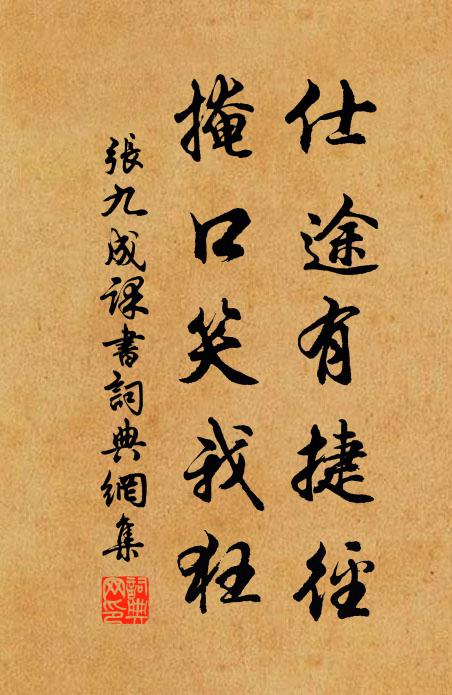 仕途有捷徑
掩口笑我狂
張九成課書詞典網集
詞典網印